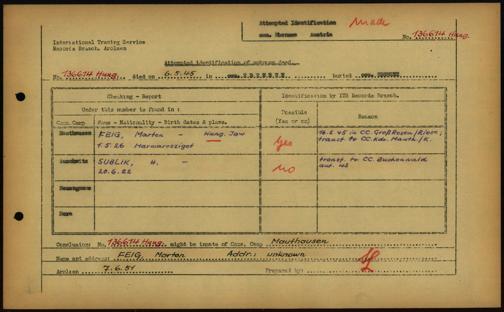 Attempted Identification
Made
com. Ebensee Austria
No. 136614 Hung.
International Tracing Service
Records Branch, Arolsen
Attempted identification of unknown dead.
No. 136614 Hung. died on 6.5.45 in com. EBENSEE buried com.
Checking - Report
Identification by ITS Records Branch.
Under this number is found in :
Possible
(Yes or no)
Reason
Conc. Camp Name - Nationality - Birth dates & place.
Mauthausen FEIG, Marton Hung. Jew
1.5.26 Marmarosziget
Yes
16.2.45 in CC. Groß Rosen/Klem;
transf to CC. Kdo. Mauth/K.
Auschwitz SUBLIK, H. -
20.6.22
No
transf. to CC. Buchenwald
Conclusion: No. 136614 Hung. might be inmate of Conc. Camp Mauthausen
Name and address: FEIG, Marton Addr.: unknown
Arolsen 7.6.51 Prepared by: